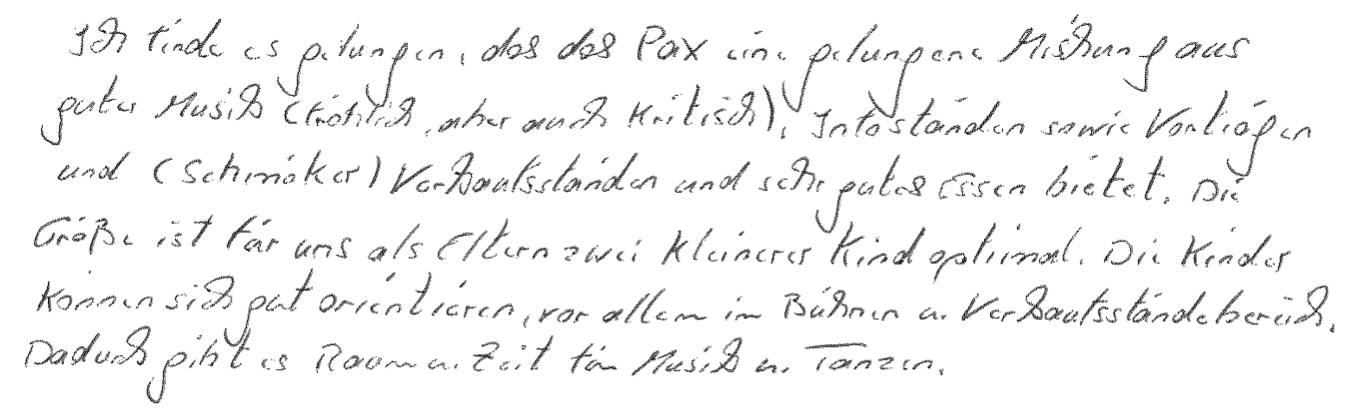 Ich finde es gelungen, das das Pax eine gelungene Mischung aus
guter Musik (fröhlich, aber auch kritisch), Infoständen sowie Vorträgen
und (Schmöker) Verkaufsständen und sehr gutes Essen bietet. Die
Größe ist für uns als Eltern zwei kleinerer Kind optimal. Die Kinder
können sich gut orientieren, vor allem im Bühnen u. Verkaufsständebereich.
Dadurch gibt es Raum u. Zeit für Musik u. Tanzen.